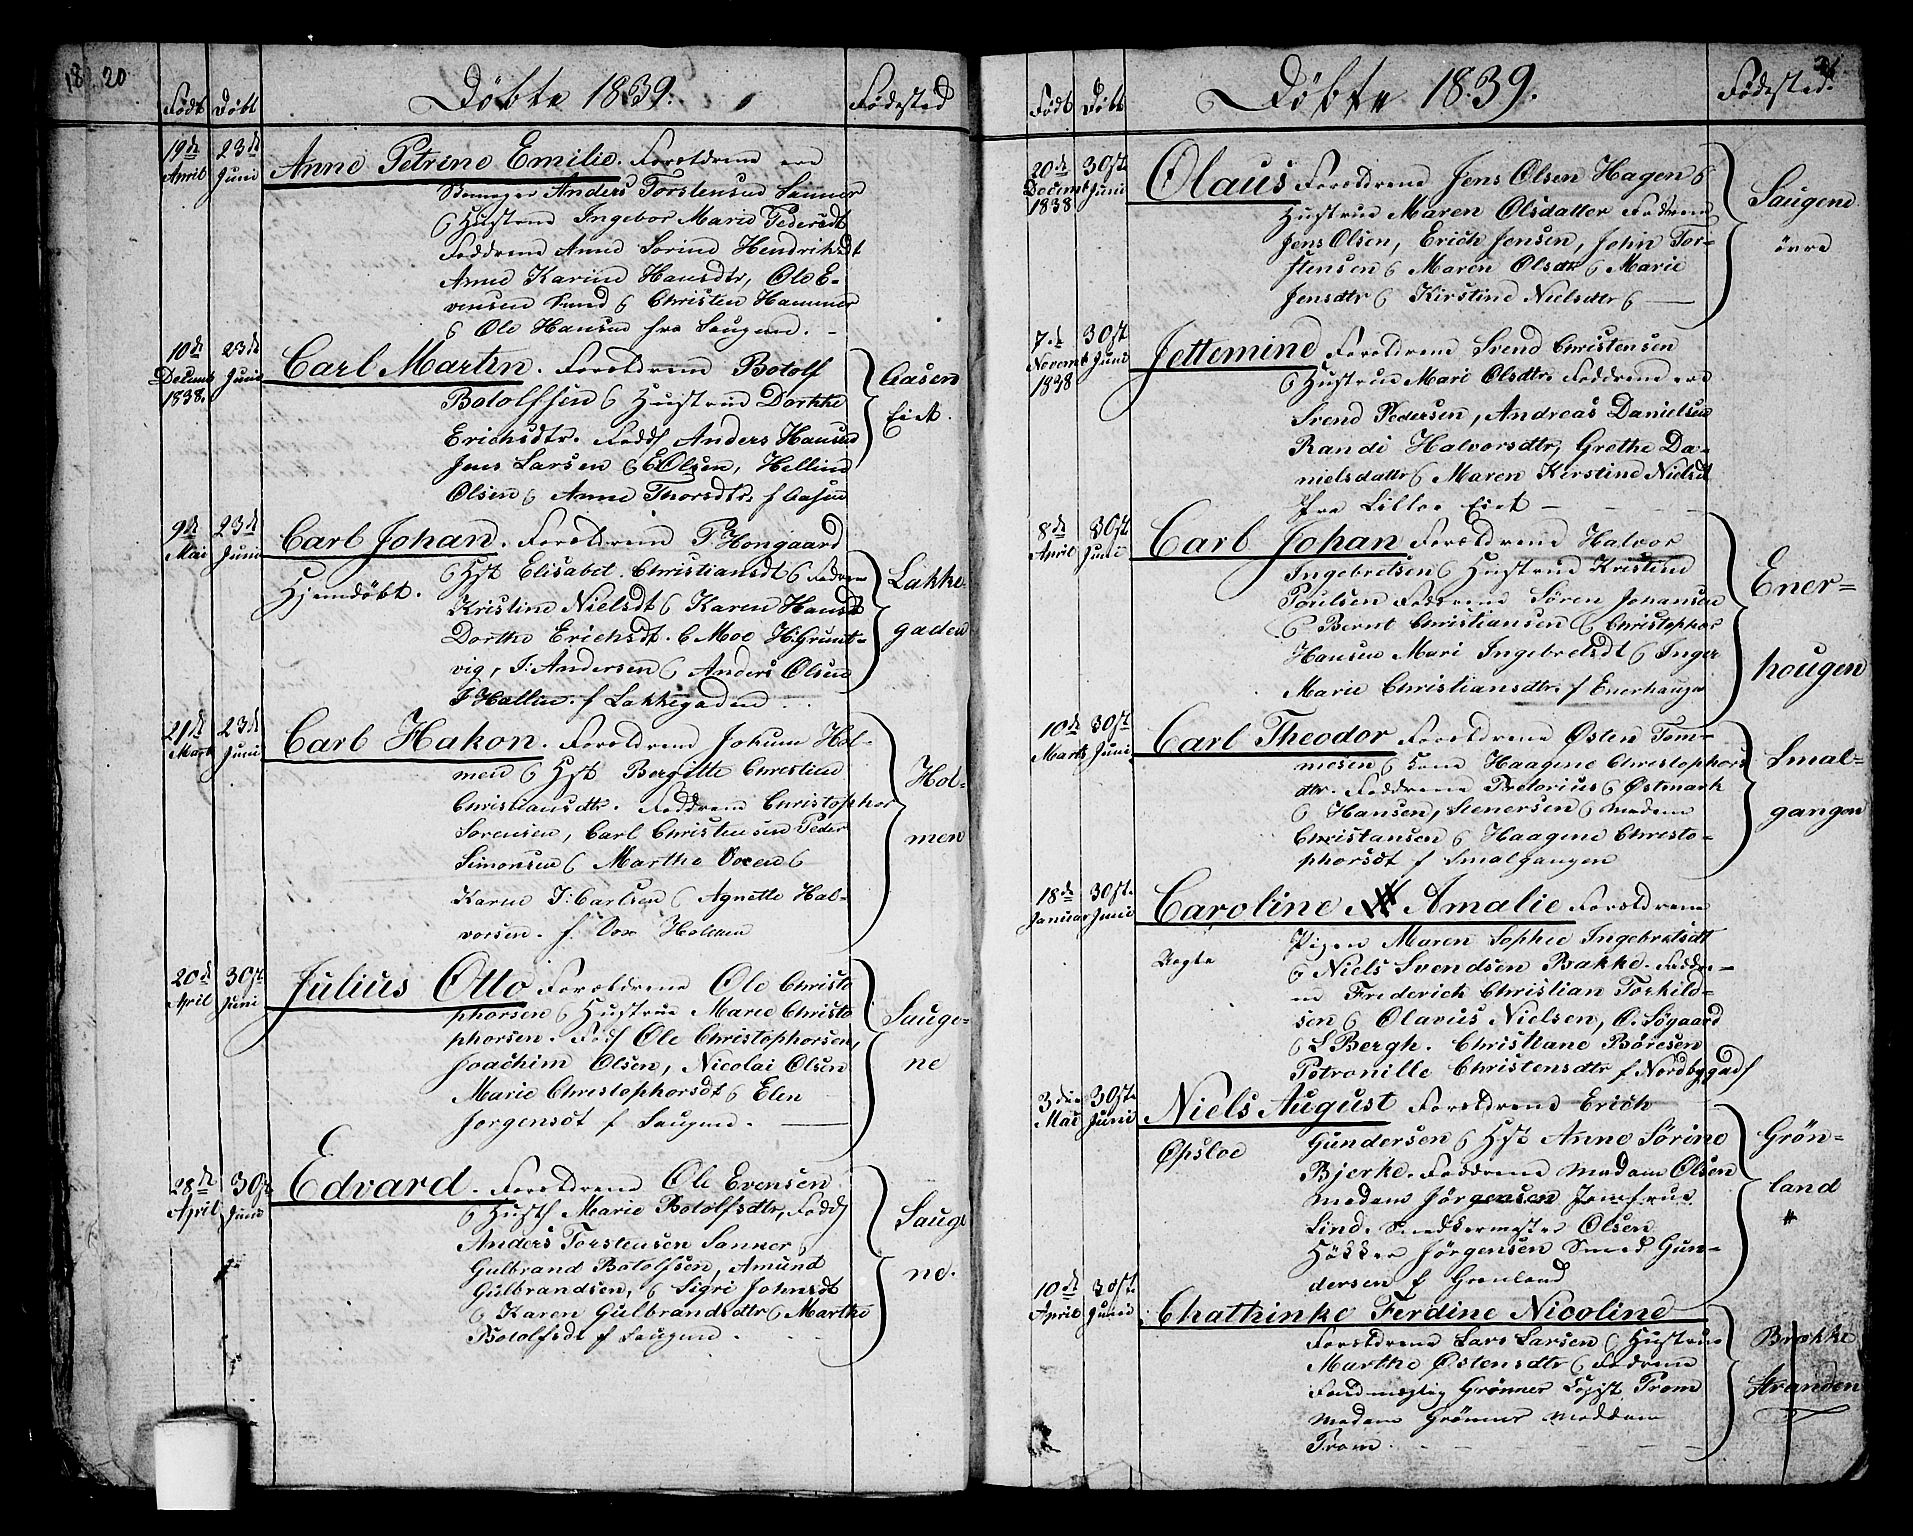 18 20
Født Døbt Døbte 1839. Fødested
19de April 23de Juni Anne Petrine Emilie. Foreldrene ere
Anders Torstensen Sanner
& Hustrue Ingebor Marie Pedersdt
Faddrene Anne Sorine Hendrichsdt
Anne Karine Hansdtr, Ole E-
vensen & Christen Hammer
& Ole Hansen fra Saugene.
10de Decemb 1838. 23de Juni Carl Martin. Foreldrene Botolf
Botolfsen & Hustrue Dorthe
Erichsdtr. Fadd Anders Hansen
Jens Larsen & E Olsen, Helline
Olsen & Anne Thorsdtr. f Aasen
Aasen
Eiet.
9de Mai 23de Juni Carl Johan. Foreldrene P. Hongaard
Hjemdøbt. & Hst Elisabet Christiansdt & Fadrene
Kristine Nielsdt & Karen Hansdt
Dorthe Erichsdt. & Moe H. Grunt-
vig, J: Andersen & Anders Olsen
J Hallin. f Lakkegaden
Lakke
gaden
21de Marts 23de Juni Carl Hakon. Foreldrene Johan Hol-
men & Hst Bergitte Christine
Christiansdtr. Faddrene Christophor
Sorensen, Carl Christensen Peder
Simonsen & Marthe Oxen &
Karen J: Carlsen & Agnette Hal-
vorsen. f. Holmen
Hol-
men
20de April 30te Juni Julius Otto Foreldrene Ole Christo
phorsen & Hustrue Marie Christo
phorsen. Fad Ole Christophorsen,
Joachim Olsen, Nicolai Olsen
Marie Christophorsdt & Elen
Jorgensdt f Saugene.
Sauge-
ne
28de April 30te Juni Edvard. Foreldrene Ole Evensen
& Hust Marie Botolfsdtr, Fadd
Anders Torstensen Sanner &
Gulbrand Botolfsen, Amund
Gulbrandsen, & Sigri Johnsdt
& Karen Gulbrandsdtr & Marthe
Botolfsdt f Saugene.
Sauge
ne.
21.
Født Døbt Døbte 1839. Fødested.
20de Decemb 1838 30te Juni Olaus Foreldrene Jens Olsen Hagen &
Hustrue Maren Olsdatter Fadrene
Jens Olsen, Erich Jensen, John Tor-
stensen & Maren Olsdt & Marie
Jensdtr & Kirstine Nielsdtr &
Saugene
övre
7de Novemb 1838 30te Juni Jettemine Foreldrene Svend Christensen
& Hustrue Mari Olsdtr. Faddrene ere
Svend Pedersen, Andreas Danielsen
Randi Halvorsdtr, Grethe Da-
nielsdattr & Maren Kirstine Nielsdt
fra Lilloe Eiet
8de April 30te Juni Carl Johan Foreldrene Halvor
Ingebretsen & Hustrue Kristine
Poulsen Faddrene Søren Johansen
& Bernt Christiansen & Christopher
Hansen Mari Ingebretsdt & Inger
Marie Christiansdtr. f Enerhaugen
Ener-
hougen
10de Marts 30te Juni Carl Theodor Foreldrene Østen Tom-
mesen & Kone Haagene Christophors
dtr. Faddrene Pretorius & Østmark
& Hansen, Stenersen & Madam
Christansen & Haagene Christo-
phorsdt f Smalgangen
Smal-
gangen
18de Januar 30te Juni Caroline Amalie Foreldrene
Uegte Pigen Maren Sophie Ingebretsdt
& Niels Svendsen Bakke. Faddre-
ne Frederich Christian Torkild-
sen & Olavus Nielsen, O. Søgaard
& L Bergh. Christiane Böresen
Petronille Christensdtr f Nordbygad
3die Mai 30te Juni Niels August Foreldrene Erich
Opsloe Gundersen & Hst Anne Sörine
Bjerke. Faddrene Madam Olsen
Madam Jörgensen Jomfrue
Lind. Snedkermester Olsen
Høkker Jörgensen Smed Gun-
dersen f Grønland
Grön-
land
10de April 30te Juni Chathinke Ferdine Nicoline
Foreldrene Lars Larsen & Hustrue
Marthe Østensdtr & Fadrene
Fuldmægtig Grönner Trom
Madam Grönner Maddam
Trom.
Brække
stranden